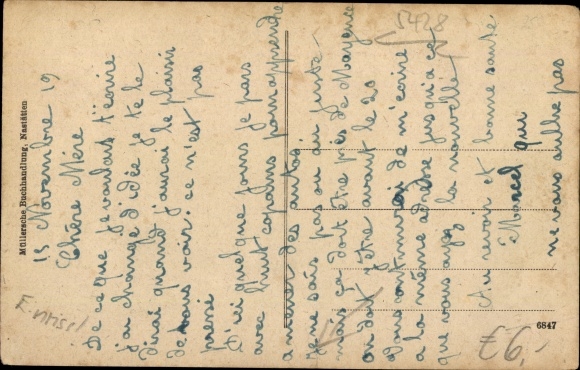 15 Novembre 19
Chère Mère
De ce que je voulais t'écrire
j'ai changé d'idée je te le
dirai quand j'aurai le plaisir
de vous voir. ce n'est pas
pressé
D'ici quelque jours je pars
avec huit copains pour apprendre
a mener des autos
Je ne sais pas ou au juste
mais ca doit être près de Mayence
on doit y être avant le 20
Vous continuerez de m'écrire
a la même adresse jusqu'a ce
que vous ayez la nouvelle
Au revoir et bonne santé
Marcel qui
ne vous oublie pas
Müllersche Buchhandlung, Nastätten
6847
5428
97